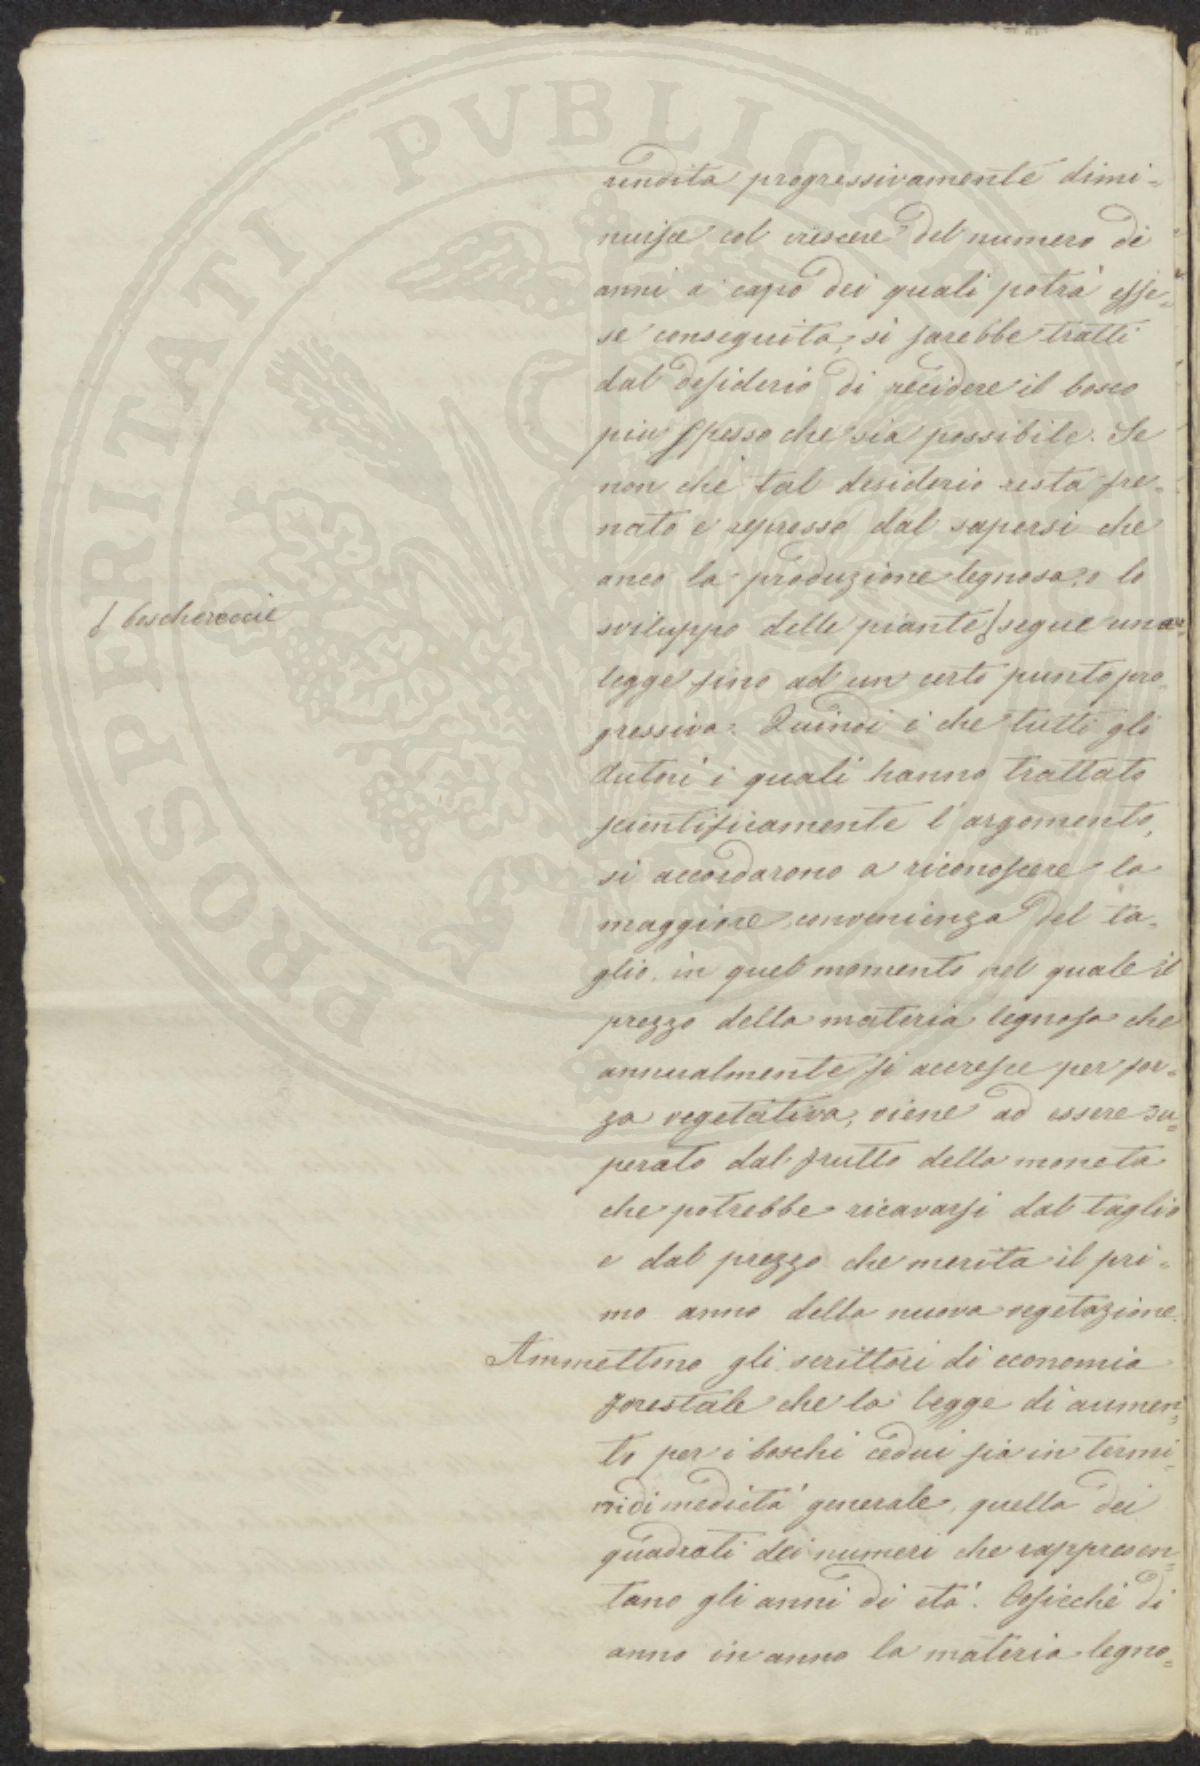 PROSPERITATI PVBLICAE
rendita progressivamente dimi-
nuisce col crescere del numero di
anni a capo dei quali potrà esse-
se conseguita, si sarebbe tratti
dal desiderio di recidere il bosco
piu spesso che sia possibile. Se
non che tal desiderio resta fre-
nato e represso dal sapersi che
anco la produzione legnosa, o lo
sviluppo delle piante ∫ segue una
∫ boscherecie
legge fino ad un certo punto pro-
gressiva. Quindi è che tutti gli
Autori i quali hanno trattato
scientificamente l'argomento,
si accordarono a riconoscere la
maggiore convenienza del ta-
glio in quel momento nel quale il
prezzo della materia legnosa che
annualmente si accresce per for-
za vegetativa, viene ad essere su-
perato dal frutto della moneta
che potrebbe ricavarsi dal taglio
e dal prezzo che merita il pri-
mo anno della nuova vegetazione.
Ammettono gli scrittori di economia
forestale che la legge di aumen-
to per i boschi cedui sia in termi-
ni di medietà generale, quella dei
quadrati dei numeri che rappresen-
tano gli anni di età. Cosicchè di
anno in anno la materia legno-